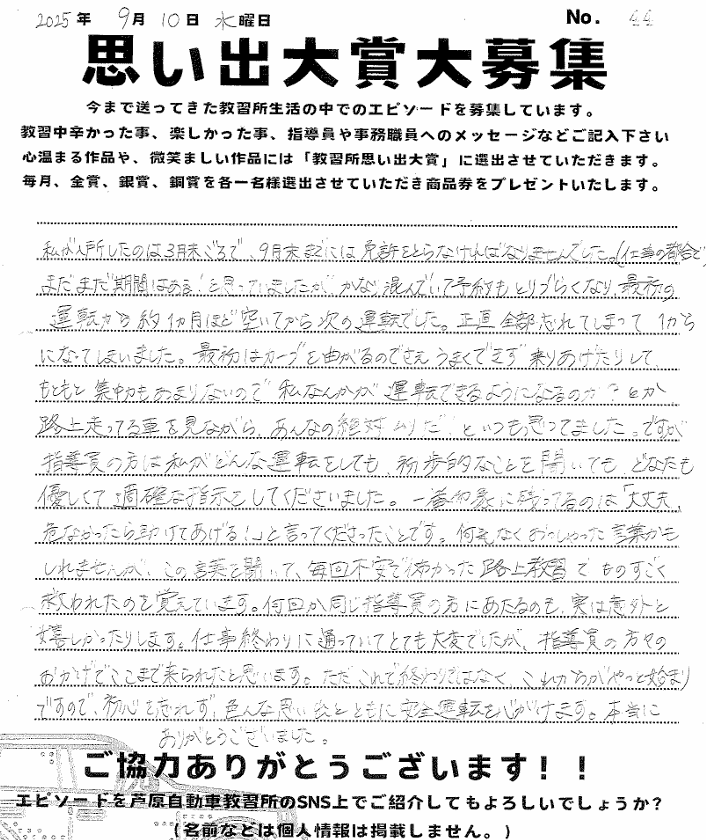 2025年 9月 10日 水曜日 No. 44
思い出大賞大募集
今まで送ってきた教習所生活の中でのエピソードを募集しています。
教習中辛かった事、楽しかった事、指導員や事務職員へのメッセージなどご記入下さい
心温まる作品や、微笑ましい作品には「教習所思い出大賞」に選出させていただきます。
毎月、金賞、銀賞、銅賞を各一名様選出させていただき商品券をプレゼントいたします。
私が入所したのは3月末ごろで、9月末までには免許をとらなければなりませんでした。(仕事の都合で)
まだまだ期間はある!と思っていましたが、かなり混んでいて予約もとりづらくなり、最初の
運転から約1カ月ほど空いてから次の運転でした。正直全部忘れてしまって1から
になってしまいました。最初はカーブを曲がるのでさえうまくできず乗りあげたりして、
もともと集中力もあまりないので私なんかが運転できるようになるのか?とか
路上走ってる車を見ながら、あんなの絶対ムリだ!といつも思ってました。ですが
指導員の方は私がどんな運転をしても、初歩的なことを聞いても、どなたも
優しくて適確な指示をしてくださいました。一番印象に残ってるのは「大丈夫、
危なかったら助けてあげる!」と言ってくださったことです。何気なくおっしゃった言葉かも
しれませんが、この言葉を聞いて、毎回不安で怖かった路上教習でものすごく
救われたのを覚えています。何回か同じ指導員の方にあたるのも、実は意外と
嬉しかったりします。仕事終わりに通っていてとても大変でしたが、指導員の方々の
おかげでここまで来られたと思います。ただこれで終わりではなく、これからがやっと始まり
ですので、初心を忘れず、色んな思い出とともに安全運転を心がけます。本当に
ありがとうございました。
ご協力ありがとうございます!!
エピソードを芦原自動車教習所のSNS上でご紹介してもよろしいでしょうか?
(名前などは個人情報は掲載しません。)